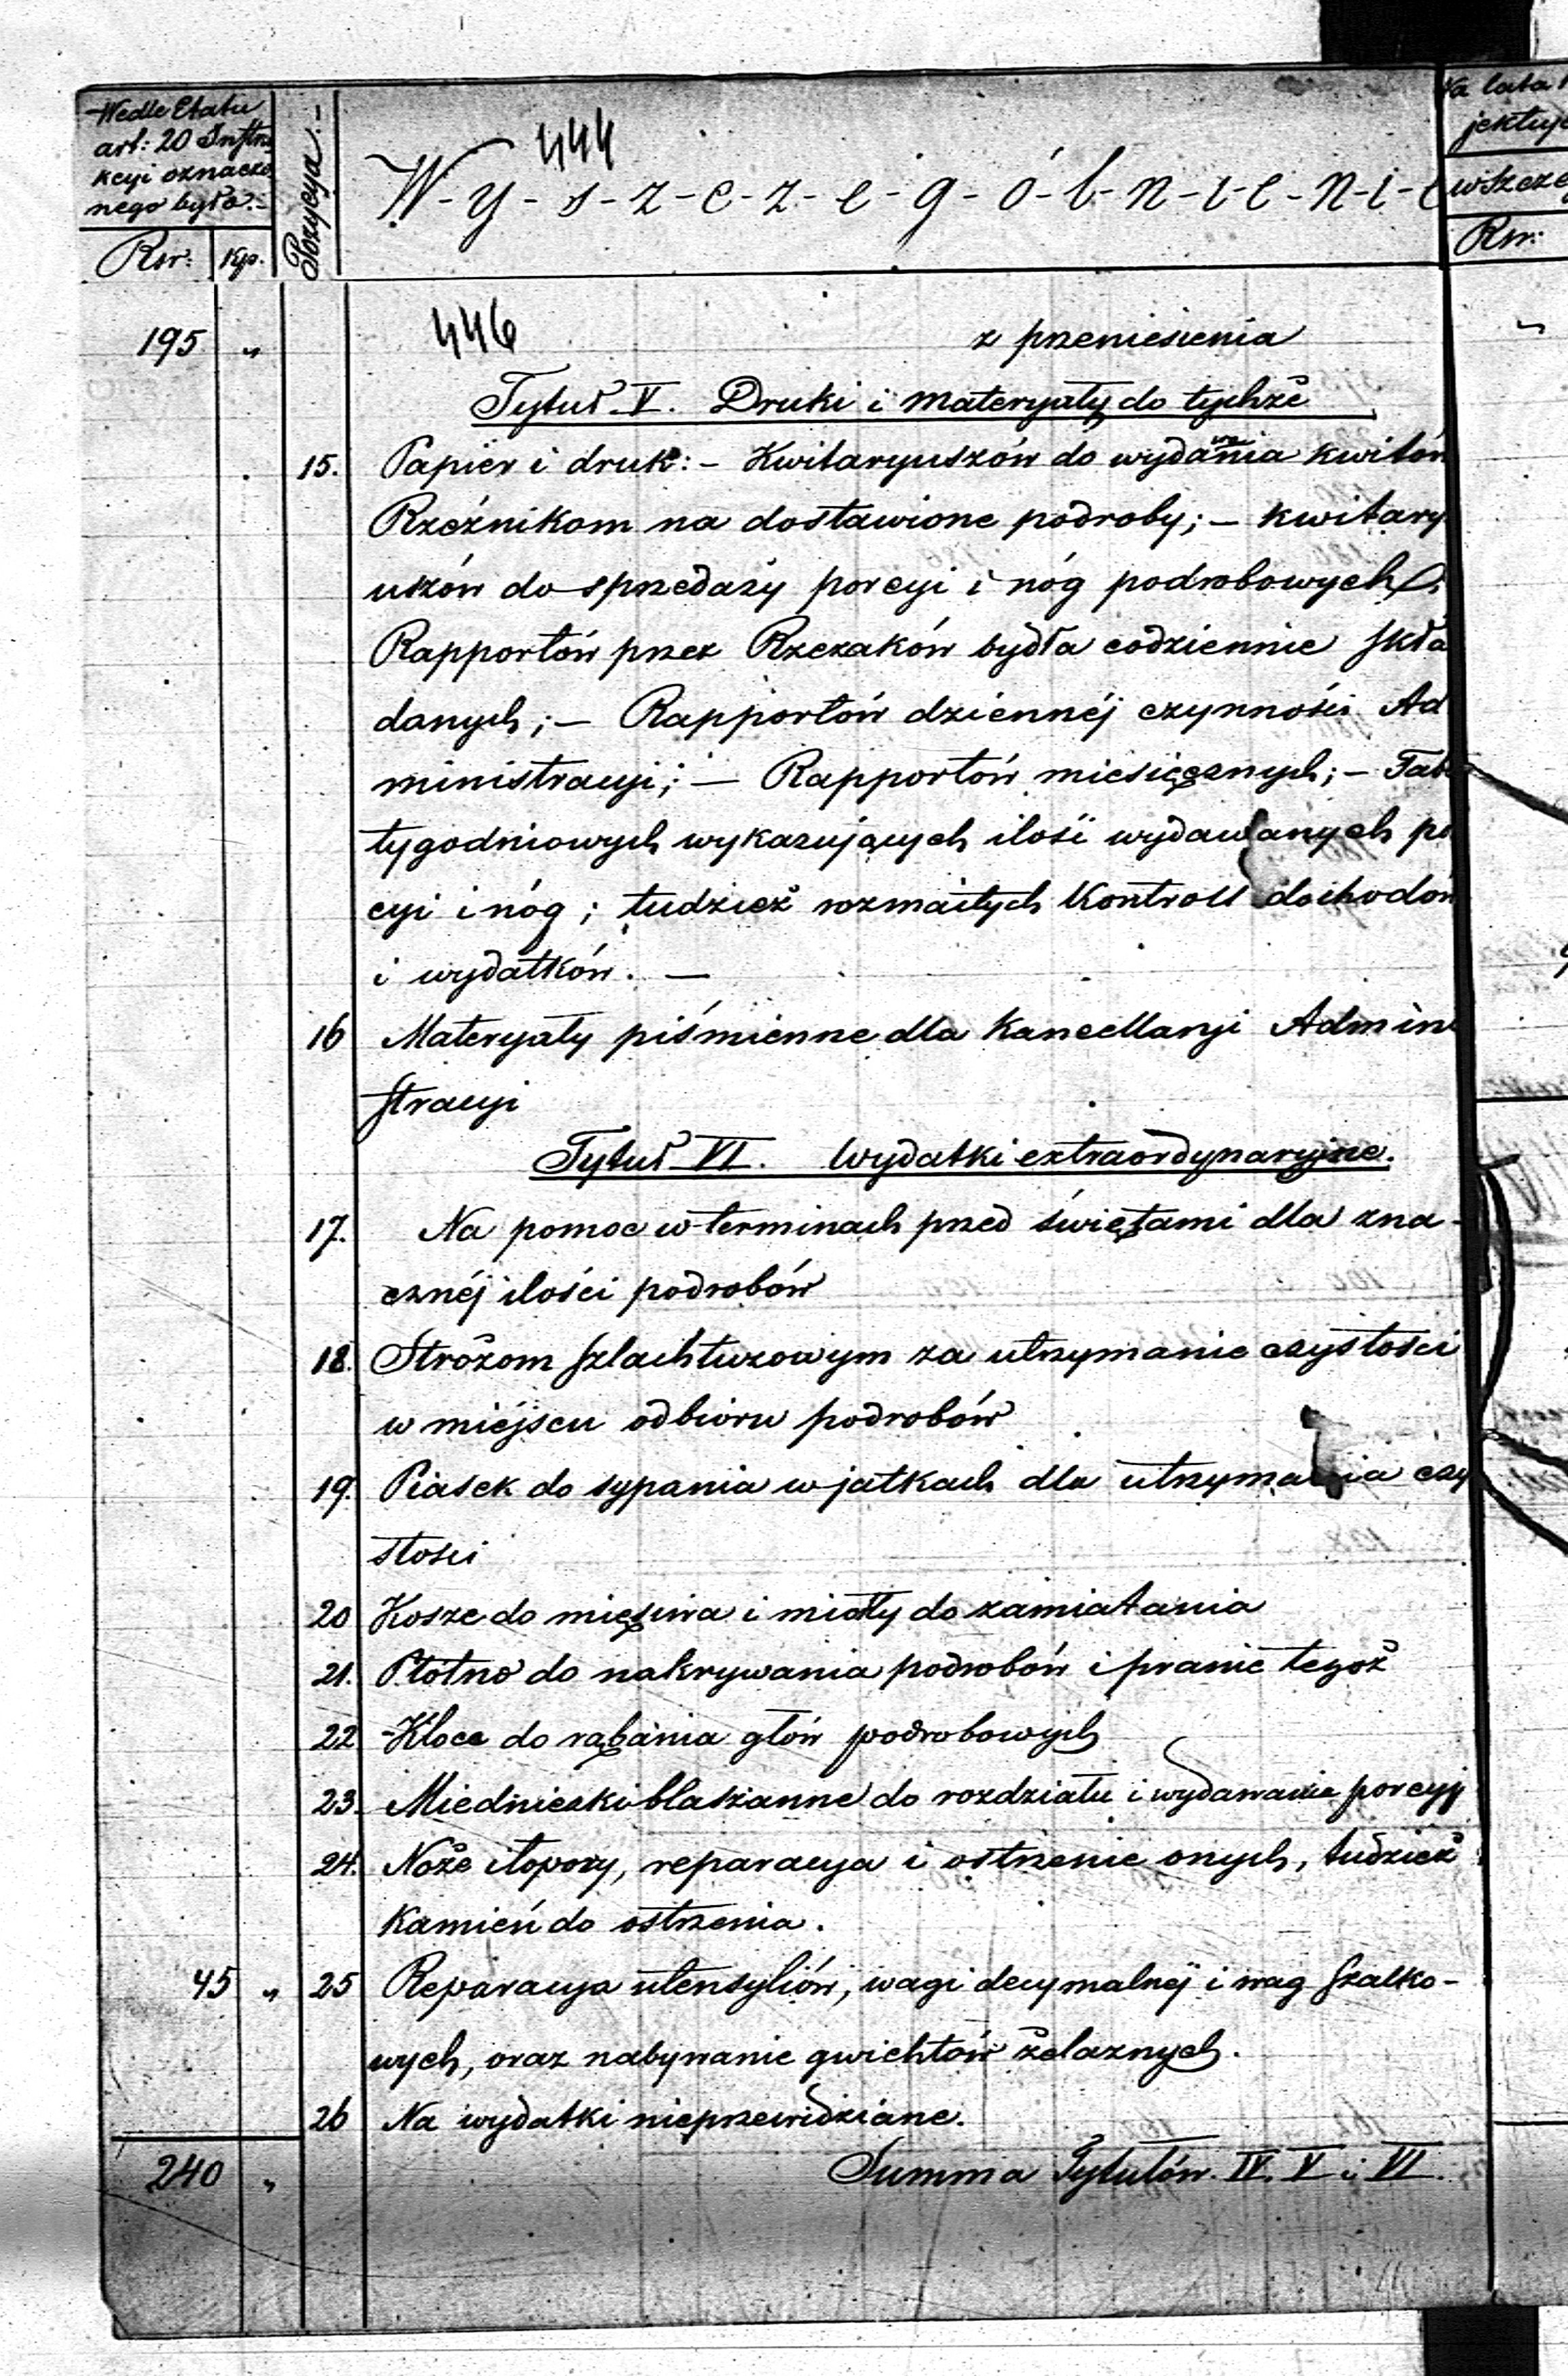 Wedle Etatu
art: 20 Instru
kcyi oznaczo
nego było.-
Rsr: Kp.
Pozycya.-
444
W-y-s-z-c-z-e-g-ó-l-n-i-e-n-i-e
Na lata
jektuje
wszcze
Rsr:
195 „ 446 z przeniesienia
Tytuł V. Druki i materyały do tychże
15. Papier i druk: - Kwitaryuszów do wydania kwitów
Rzeźnikom na dostawione podroby; - kwitary
uszów do sprzedaży porcyi i nóg podrobowych;
Rapportów przez Rzezaków bydła codziennie skła
danych; - Rapportów dziennéj czynności Ad
ministracyi; - Rapportów miesięcznych; - Tab
tygodniowych wykazujących ilość wydawanych po
cyi i nóg; tudzież rozmaitych Kontroll dochodów
i wydatków. -
16 Materyały piśmienne dla Kancellaryi Admini
stracyi
Tytuł VI. Wydatki extraordynaryjne.
17. Na pomoc w terminach przed świętami dla zna-
cznéj ilości podrobów
18. Stróżom szlachtuzowym za utrzymanie czystości
w miejscu odbioru podrobów
19. Piasek do sypania w jatkach dla utrzymania czy
stości
20 Kosze do mięsiwa i miotły do zamiatania
21. Płótno do nakrywania podrobów i pranie tegoż
22 Kloce do rąbania głów podrobowych
23. Miedniczki blaszanne do rozdziału i wydawania porcyj
24. Noże i topory, reparacya i ostrzenie onych, tudzież
Kamień do ostrzenia.
45 „ 25 Reparacya utensyliów, wagi decymalnéj i wag szalko-
wych, oraz nabywanie gwichtów żelaznych.
26 Na wydatki nieprzewidziane.
240 „ Summa Tytułów IV. V i VI.